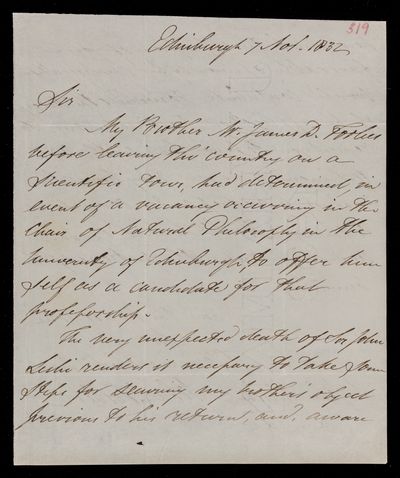 319
Edinburgh 7 Nov. 1832
Sir
My Brother Mr. James D. Forbes
before leaving this country on a
Scientific Tour, had determined, in
event of a vacancy occurring in the
Chair of Natural Philosophy in the
University of Edinburgh, to offer him
self as a candidate for that
professorship.
The very unexpected death of Sir John
Leslie renders it necessary to take some
steps for securing my brother's object
previous to his return, and, aware